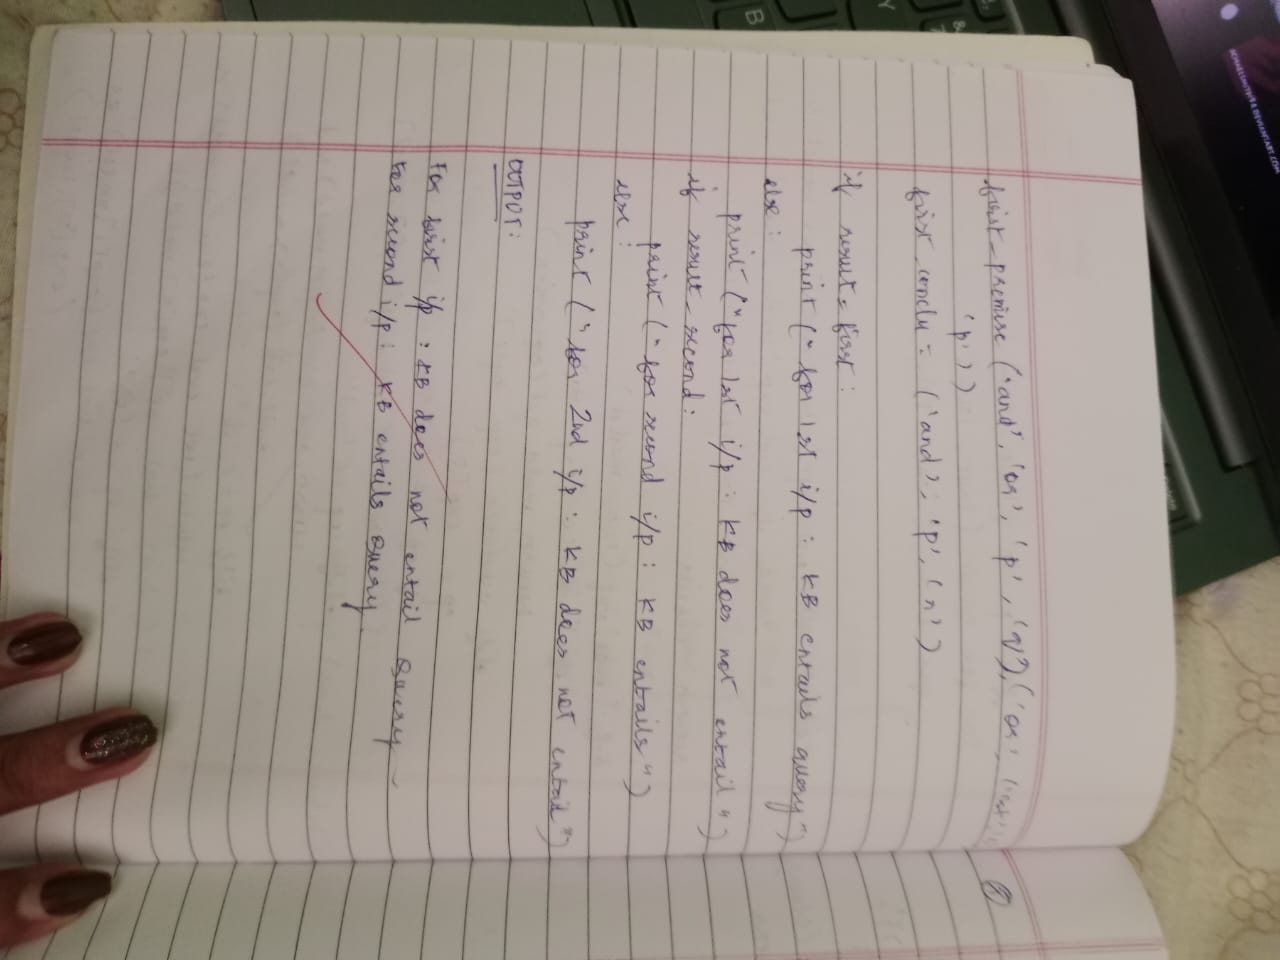 first_premise ('and', 'or', 'p', 'q'), ('or',
'p'))
first_conclu = ('and', 'p', 'r')
if result_first:
print (" for 1st i/p : KB entails query")
else:
print ("for 1st i/p : KB does not entail")
if result_second:
print (" for second i/p : KB entails")
else:
print (" for 2nd i/p : KB does not entail")
OUTPUT:
For first i/p : KB does not entail Query
For second i/p : KB entails Query